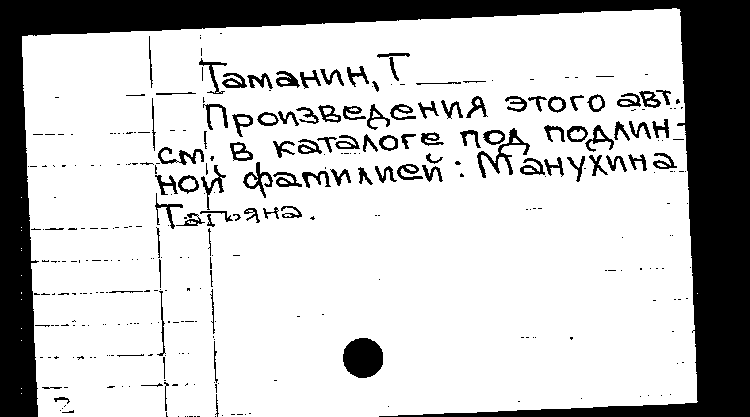 Таманин, Т
Произведения этого авт.
см. в каталоге под подлин-
ной фамилией: Манухина
Татьяна.
2